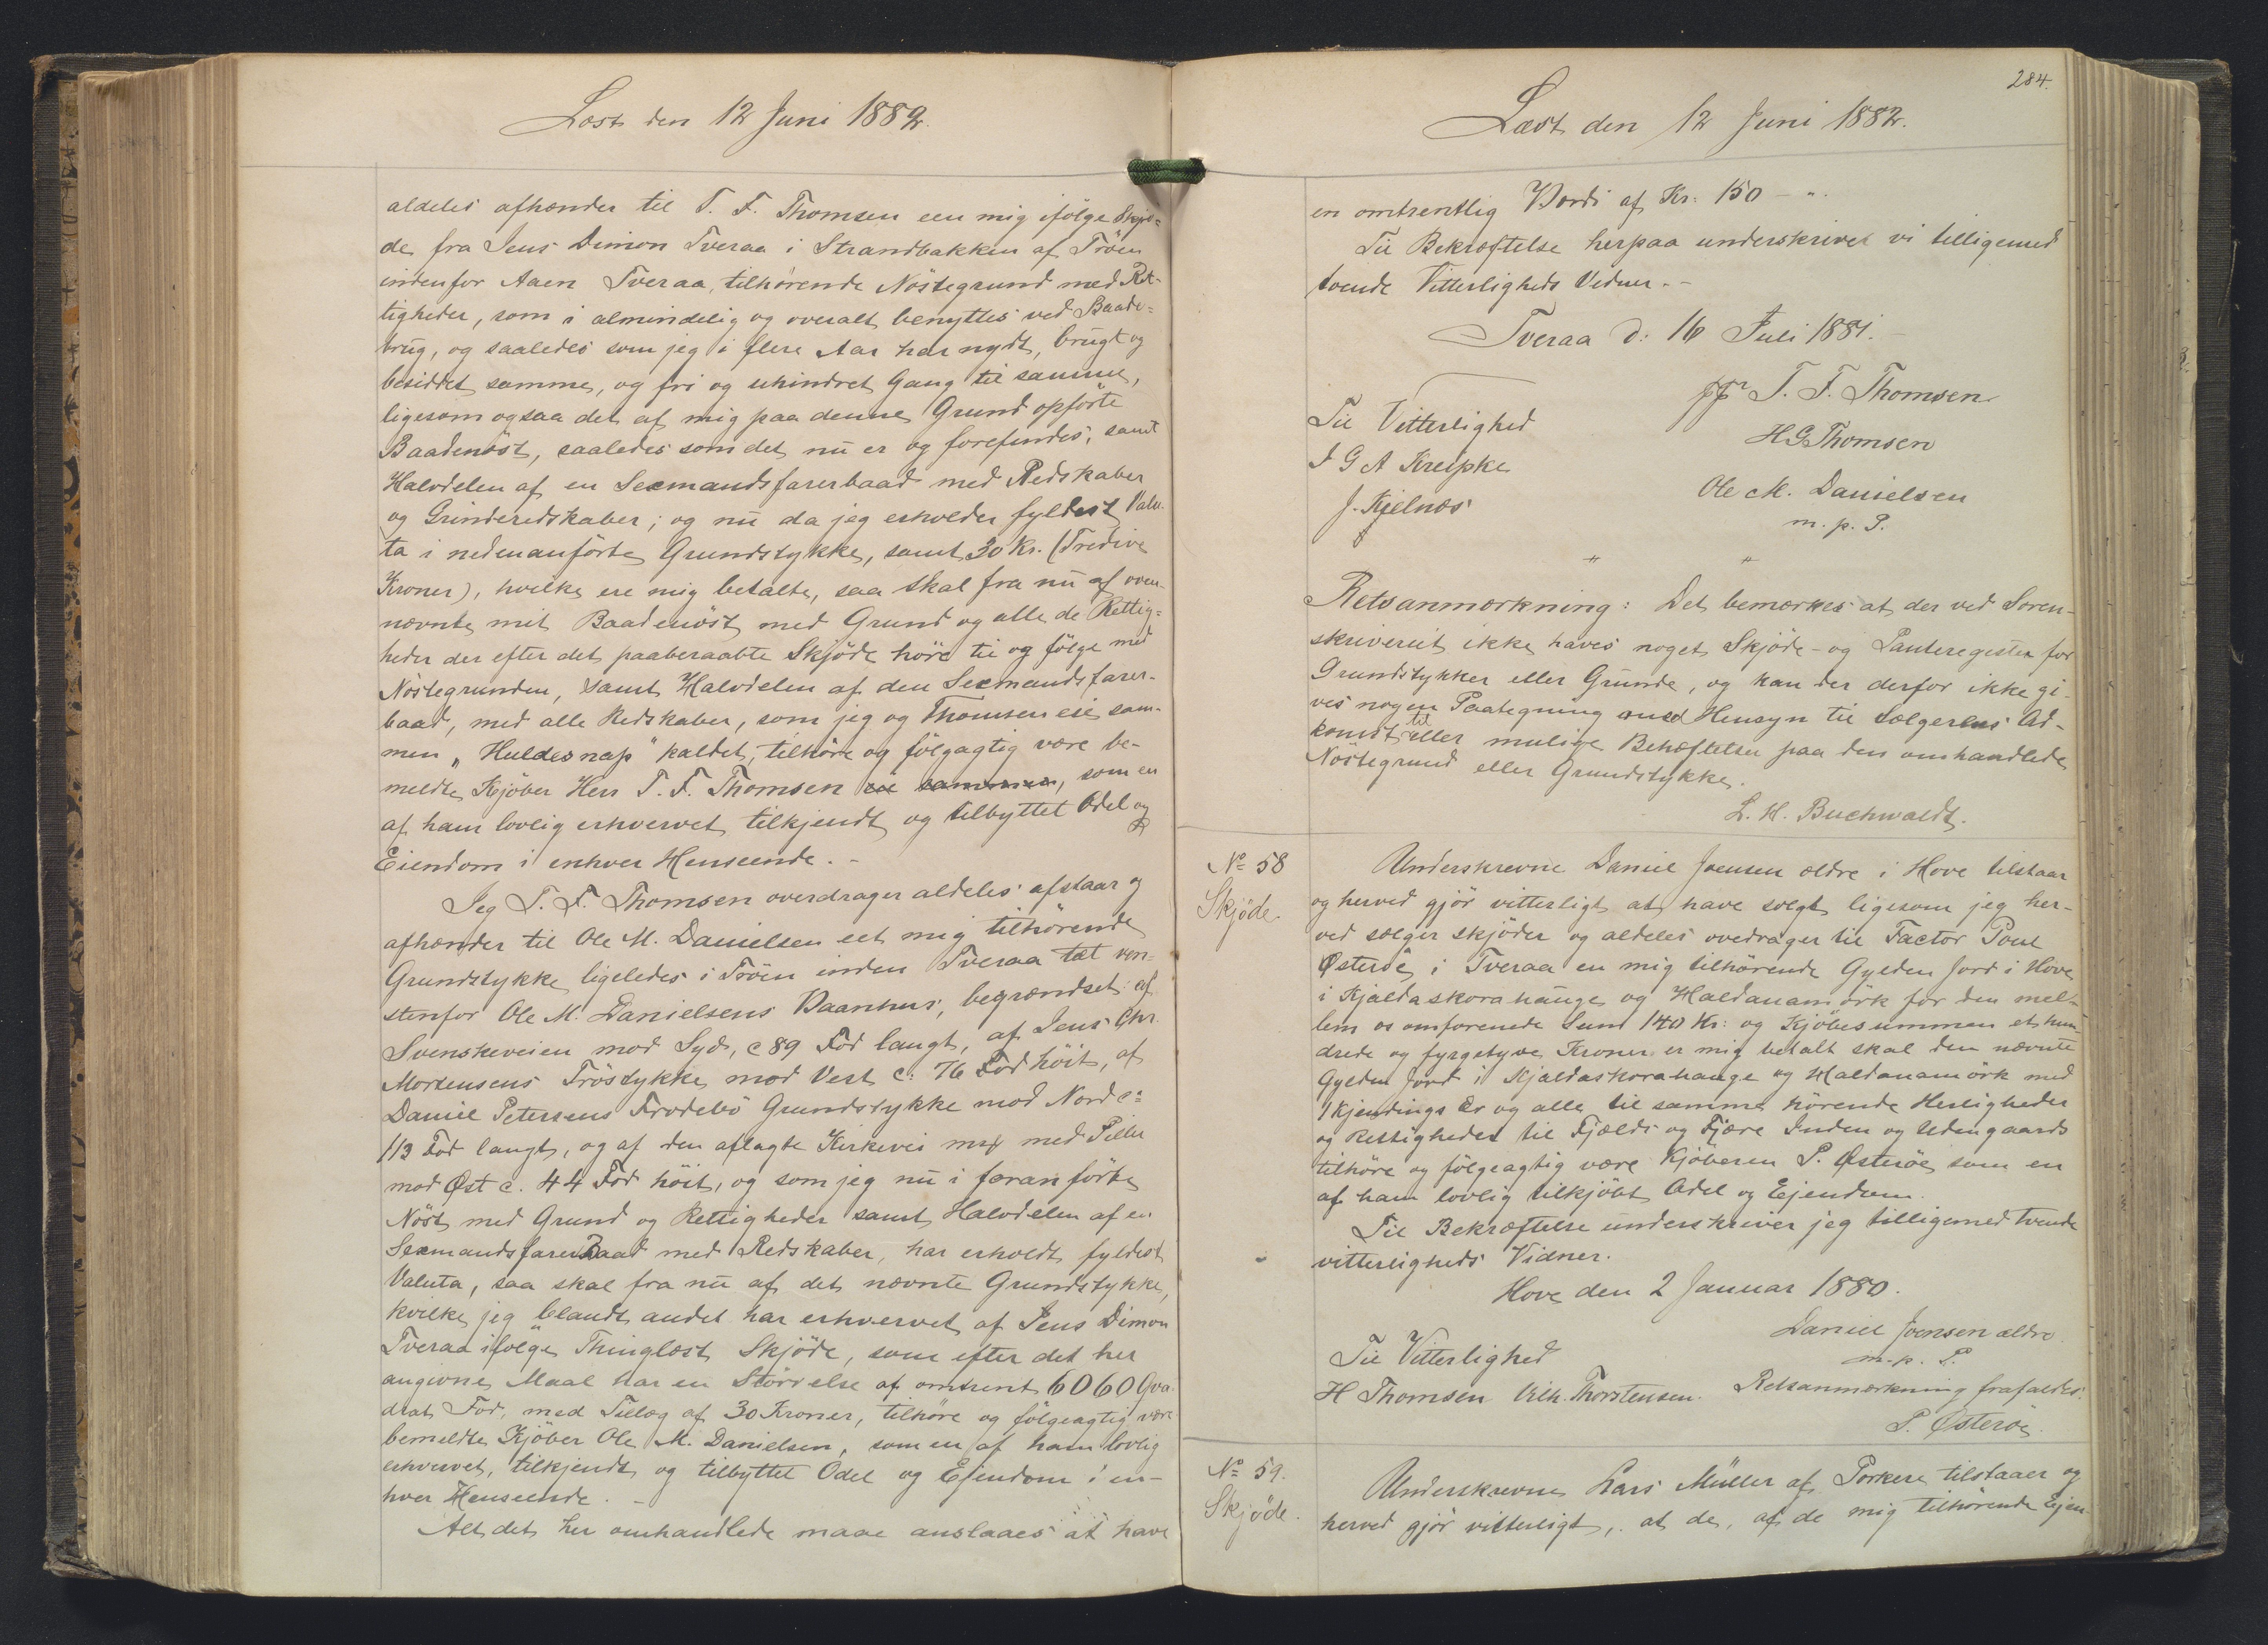 Læst den 12 Juni 1882.
aldeles afhænder til T. F. Thomsen een mig ifölge Skjö=
de fra Jens Dimon Tveraa i Strandbakken af Tröen
indenfor Aaen Tveraa, tilhörende Nöstegrund med Ret-
tigheder, som i almindelig og overalt benyttes ved Baade=
brug, og saaledes som jeg i flere Aar har nydt, brugt og
besiddet samme, og fri og uhindret Gang til samme,
ligesom ogsaa det af mig paa denne Grund opförte
Baadenöst, saaledes som det nu er og forefindes, samt
Halvdelen af en Sexmandsfarerbaad med Redskaber
og Grinderedskaber; og nu da jeg erholder fyldest Valu-
ta i nedenanförte Grundstykke, samt 30 Kr. (Tredive
Kroner), hvilke ere mig betalte, saa skal fra nu af oven-
nævnte mit Baadenöst med Grund og alle de Rettig=
heder der efter det paaberaabte Skjöde höre til og fölge med
Nöstegrunden, samt Halvdelen af den Sexmandsfarer-
baad, med alle Redskaber, som jeg og Thomsen eie sam-
men „Huldesnap" kaldet, tilhöre og fölgagtig være be-
meldte Kjöber Herr T. F. Thomsen eie sammen, som en
af ham lovlig erhvervet, tilkjendt og tilbyttet Odel og
Eiendom i enhver Henseende. -
Jeg T. F. Thomsen overdrager aldeles afstaar og
afhænder til Ole M. Danielsen eet mig tilhörende
Grundstykke ligeledes i Tröen inden Tveraa tæt ven-
stenfor Ole M. Danielsens Vaanhus, begrændset af
Svenskeveien mod Syd, c 89 Fod langt, af Jens Chr.
Mortensens Tröstykke mod Vest c: 76 Fod höit, af
Daniel Petersens Frodebö Grundstykke mod Nord c:
113 Fod langt, og af den aflagte Kirkevei med Piller
mod Øst c. 44 Fod höit, og som jeg nu i foran förte
Nöst med Grund og Rettigheder samt Halvdelen af en
Sexmandsfarer Baad med Redskaber, har erholdt fyldest
Valuta, saa skal fra nu af det nævnte Grundstykke,
hvilke jeg blandt andet har erhvervet af Jens Dimon
Tveraa ifölge Thinglæst Skjöde, som efter det her
angivne Maal har en Störrelse af omtrent 6060 Qva-
drat Fod, med Tillæg af 30 Kroner, tilhöre og fölgeagtig være
bemeldte Kjöber Ole M. Danielsen, som en af ham lovlig
erhvervet, tilkjendt og tilbyttet Odel og Ejendom i en-
hver Henseende. -
Alt det her omhandlede maae anslaaes at have
284.
Læst den 12 Juni 1882.
en omtrentlig Værdi af Kr: 150 - ".
Til Bekræftelse herpaa underskrives vi tilligemed
tvende Vitterligheds Vidner. -
Tveraa d: 16 Juli 1881.
Til Vitterlighed
ppr T. F. Thomsen
H G Thomsen
J G A Kreipke
Ole M. Danielsen
J. Kjelnæs
m. p. P.
" "
Retsanmærkning: Det bemærkes at der ved Soren-
skriveriet ikke haves noget Skjöde- og Panteregister for
Grundstykker eller Grunde, og kan der derfor ikke gi-
ves nogen Paategning med Hensyn til Sælgerens Ad-
komst til eller mulige Behæftelser paa den omhandlede
Nöstegrund eller Grundstykke.
L. H. Buchwaldt.
No 58
Skjöde.
Underskrevne Daniel Joensen ældre i Hove tilstaar
og herved gjör vitterligt at have solgt ligesom jeg her-
ved sælger skjöder og aldeles ovedrager til Factor Poul
Østeröe i Tveraa en mig tilhörende Gylden Jord i Hove
i Kjaldaskorahauge og Haldanamörk for den mel-
lem os omforenede Sum 140 Kr: og Kjöbesummen et hun-
drede og fyrgetyve Kroner er mig betalt skal den nævnte
Gylden Jord i Kjaldaskorahauge og Haldanamörk med
1 Kjendings Ær og alle til samme hörende Herligheder
og Rettigheder til Fjælds og Fjære Inden og Udengaards
tilhöre og fölgeagtig være Kjöberen P. Østeröe som en
af ham lovlig tilkjöbt Odel og Ejendom.
Til Bekræftelse underskriver jeg tilligemed tvende
vitterligheds Vidner.
Hove den 2 Januar 1880.
Daniel Joensen ældre
Til Vitterlighed
m. p. P.
H Thomsen Vilh. Thorstensen. Retsanmærkning frafaldes.
P. Østeröe.
No 59.
Skjöde.
Underskrevne Lars Müller af Porkere tilstaaer og
herved gjör vitterligt, at de, af de mig tilhörende Ejen-